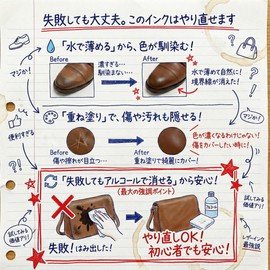 失敗しても大丈夫。このインクはやり直せます
「水で薄める」から、色が馴染む!
Before
After
濃すぎる…
馴染まない…
水で薄めて自然に!
境界線が消えた!
マジか!
マジか!
「重ね塗り」で、傷や汚れも隠せる!
Before
After
傷や擦れが目立つ…
重ね塗りで綺麗にカバー!
色が濃くなるわけじゃない!
傷をカバーしたい時に!
便利すぎる
「失敗してもアルコールで消せる」から安心!
(最大の強調ポイント)
失敗!はみ出した!
やり直しOK!
初心者でも安心!
試してみる
価値アリ!
試してみる
価値アリ!